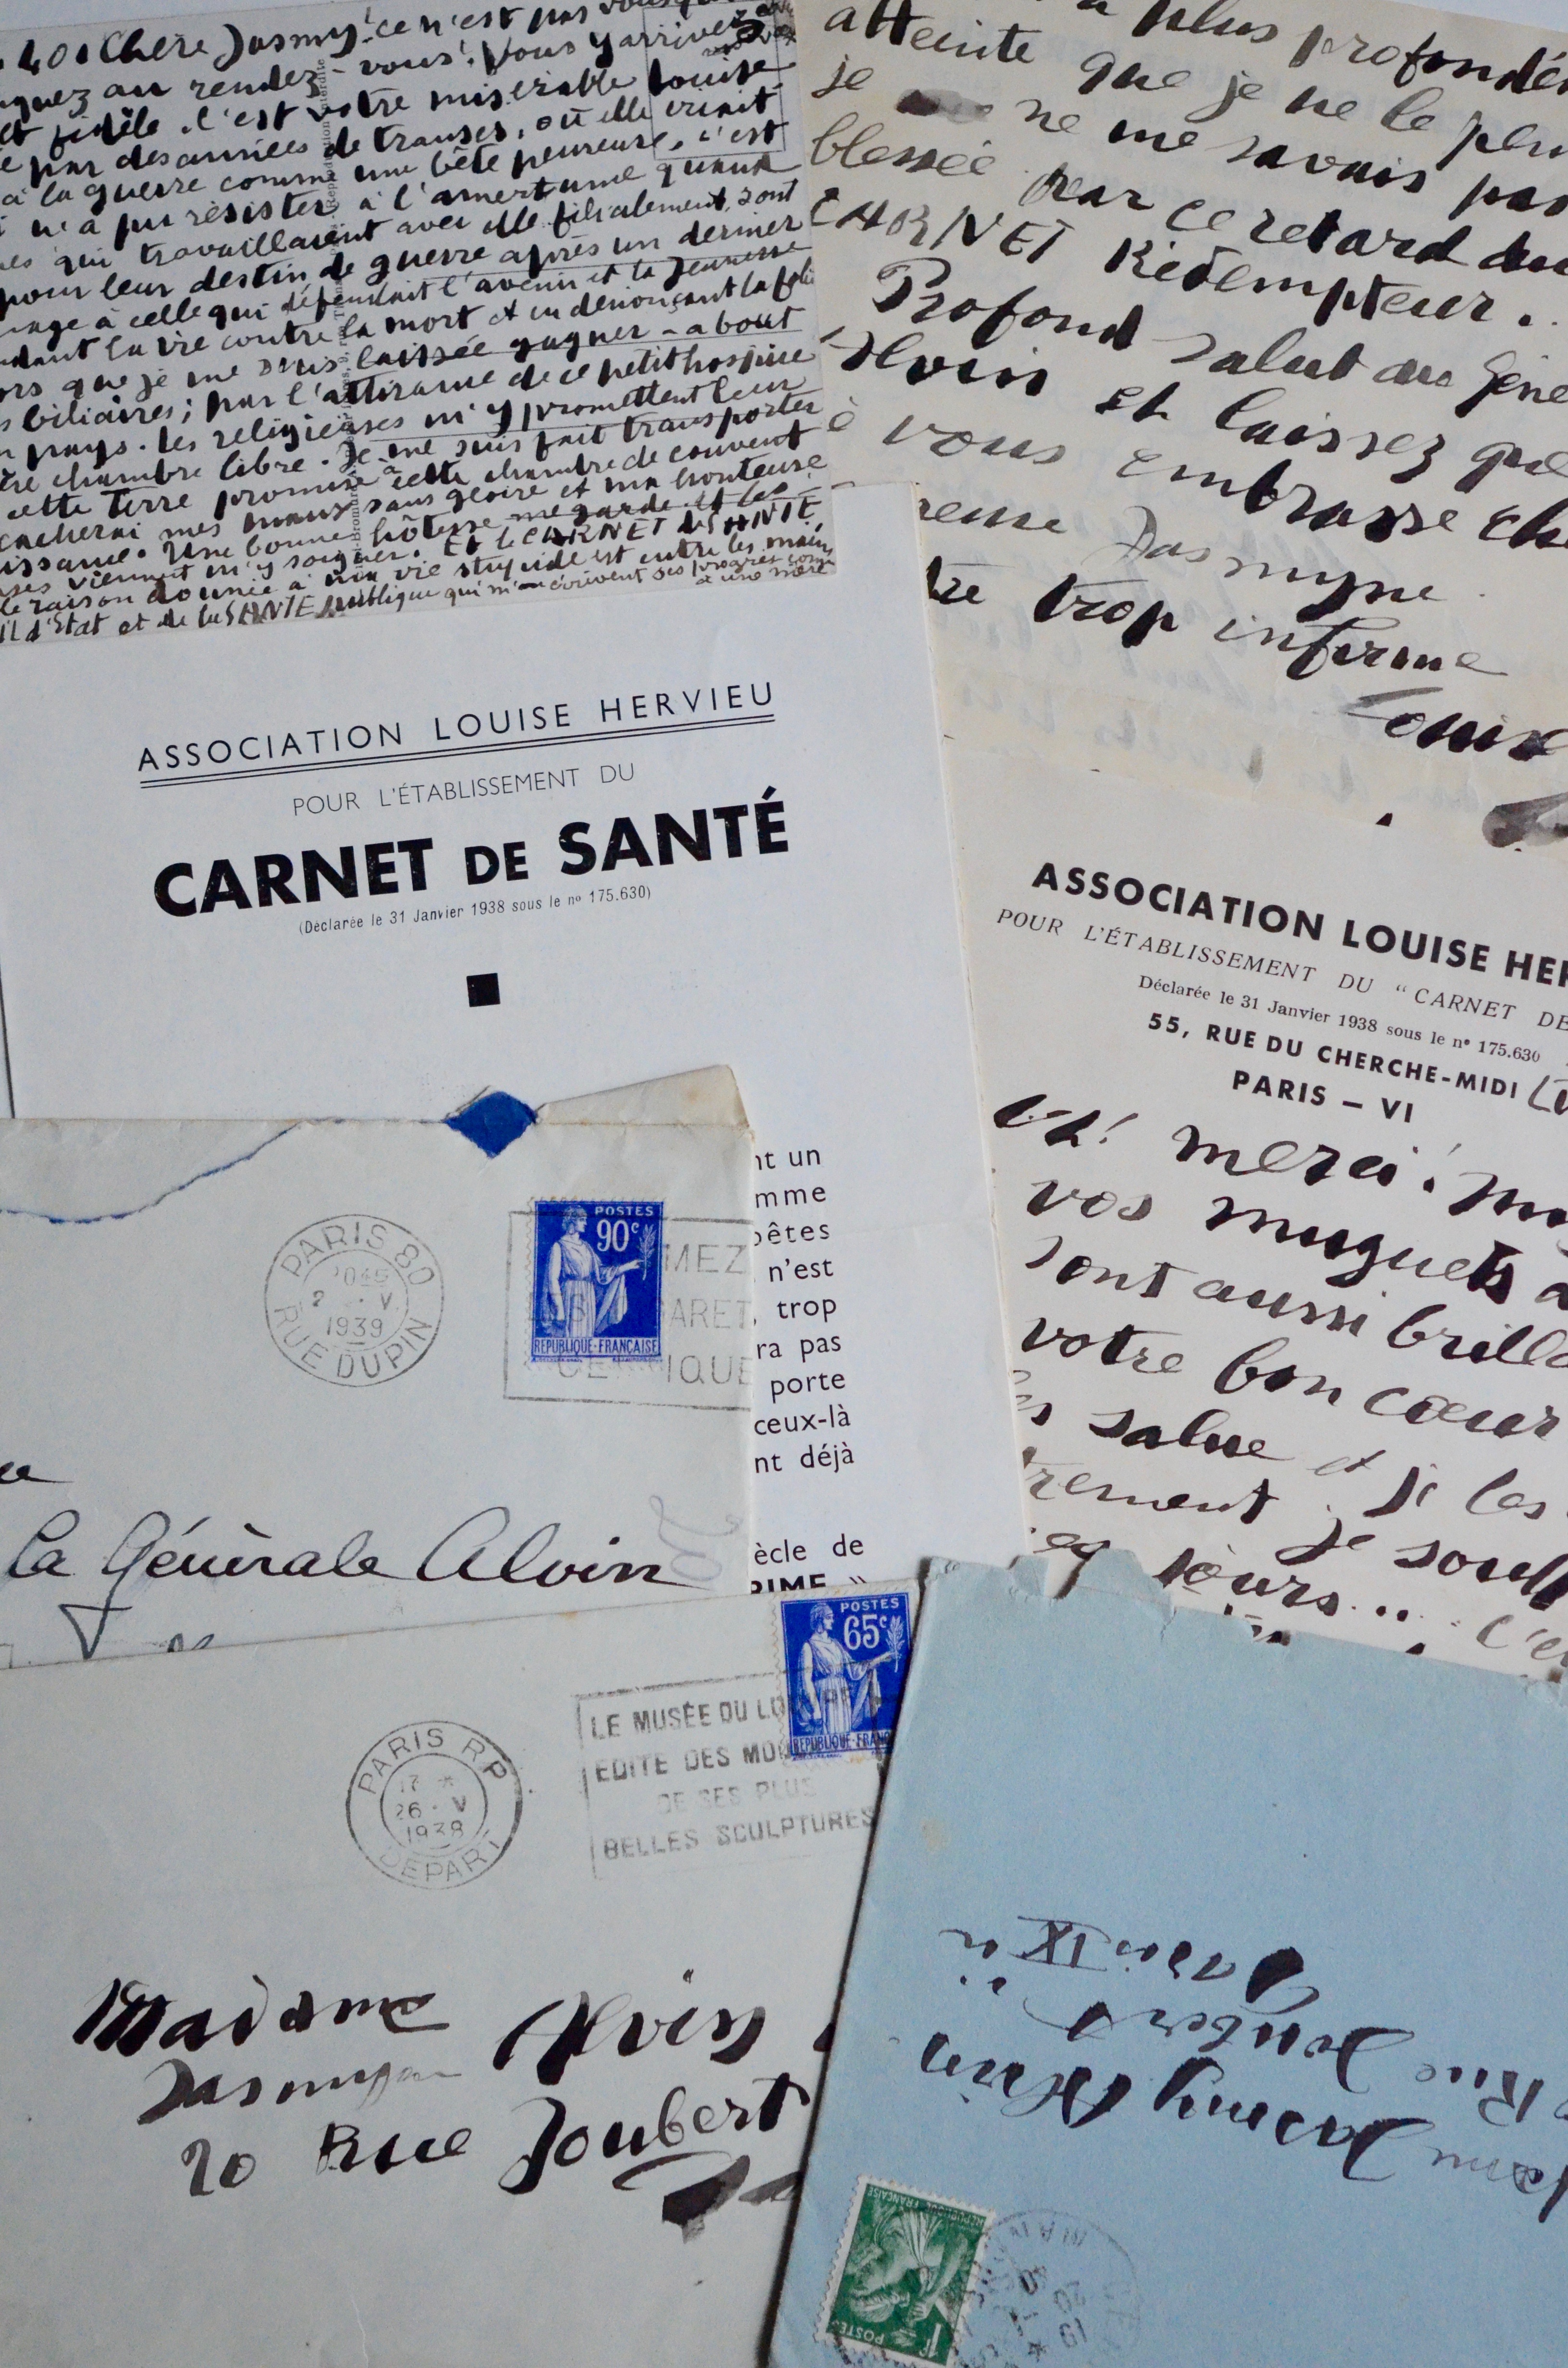 40 Chère Jasmy! ce n'est pas vous qui
au rendez-vous! Vous y arrivez
et fidèle. C'est votre misérable Louise
par des années de transes, où elle criait
à la guerre comme une bête peureuse, c'est
n'a pu résister à l'amertume quand
qui travaillaient avec elle filialement, sont
pour leur destin de guerre après un dernier
à celle qui défendait l'avenir et la jeunesse
la vie contre la mort et en dénonçant la folie
que je me suis laissée gagner - à bout
biliaires; par l'attirance de ce petit hospice
pays. Les religieuses m'y promettent leur
chambre libre. Je me suis fait transporter
cette Terre promise à cette chambre de couvent
cacherai mes maux sans gloire et ma honteuse
Une bonne hôtesse me garde et les
viennent m'y soigner. Et le CARNET de SANTÉ,
raison donnée à ma vie stupide est entre les mains
d'État et de la SANTE publique qui m'en écrivent ses progrès comme
à une mère
plus profondé
atteinte que je ne le
je ne me savais pas
blessée par ce retard du
CARNET Rédempteur..
Profond salut au Géné
Alvin et laissez que
vous embrasse
Jasmyne
trop infirme
Louise
ASSOCIATION LOUISE HERVIEU
POUR L'ÉTABLISSEMENT DU
CARNET DE SANTÉ
(Déclarée le 31 Janvier 1938 sous le nº 175.630)
nt un
mme
bêtes
n'est
trop
ra pas
porte
ceux-là
nt déjà
ècle de
RIME »
ASSOCIATION LOUISE HER
POUR L'ÉTABLISSEMENT DU "CARNET DE
Déclarée le 31 Janvier 1938 sous le nº 175.630
55, RUE DU CHERCHE-MIDI
PARIS — VI
merci!
vos muguets
sont aussi brilla
votre bon cœur
salue et je les
trement. Je souff
jours... C'e
PARIS 80
1939
RUE DUPIN
POSTES
90c
REPUBLIQUE-FRANÇAISE
MEZ
ARET
IQUE
La Générale Alvin
PARIS R.P
17 *
26 - V
1938
DEPART
POSTES
65c
REPUBLIQUE-FRANÇ
LE MUSÉE DU LOUVRE
EDITE DES MOU
DE SES PLUS
BELLES SCULPTURES
Madame Alvin
Jasmyne
20 Rue Joubert
Jasmy Alvin
Rue Joubert
Paris IX
REPUBLIQUE FRANÇAISE
POSTES
1F